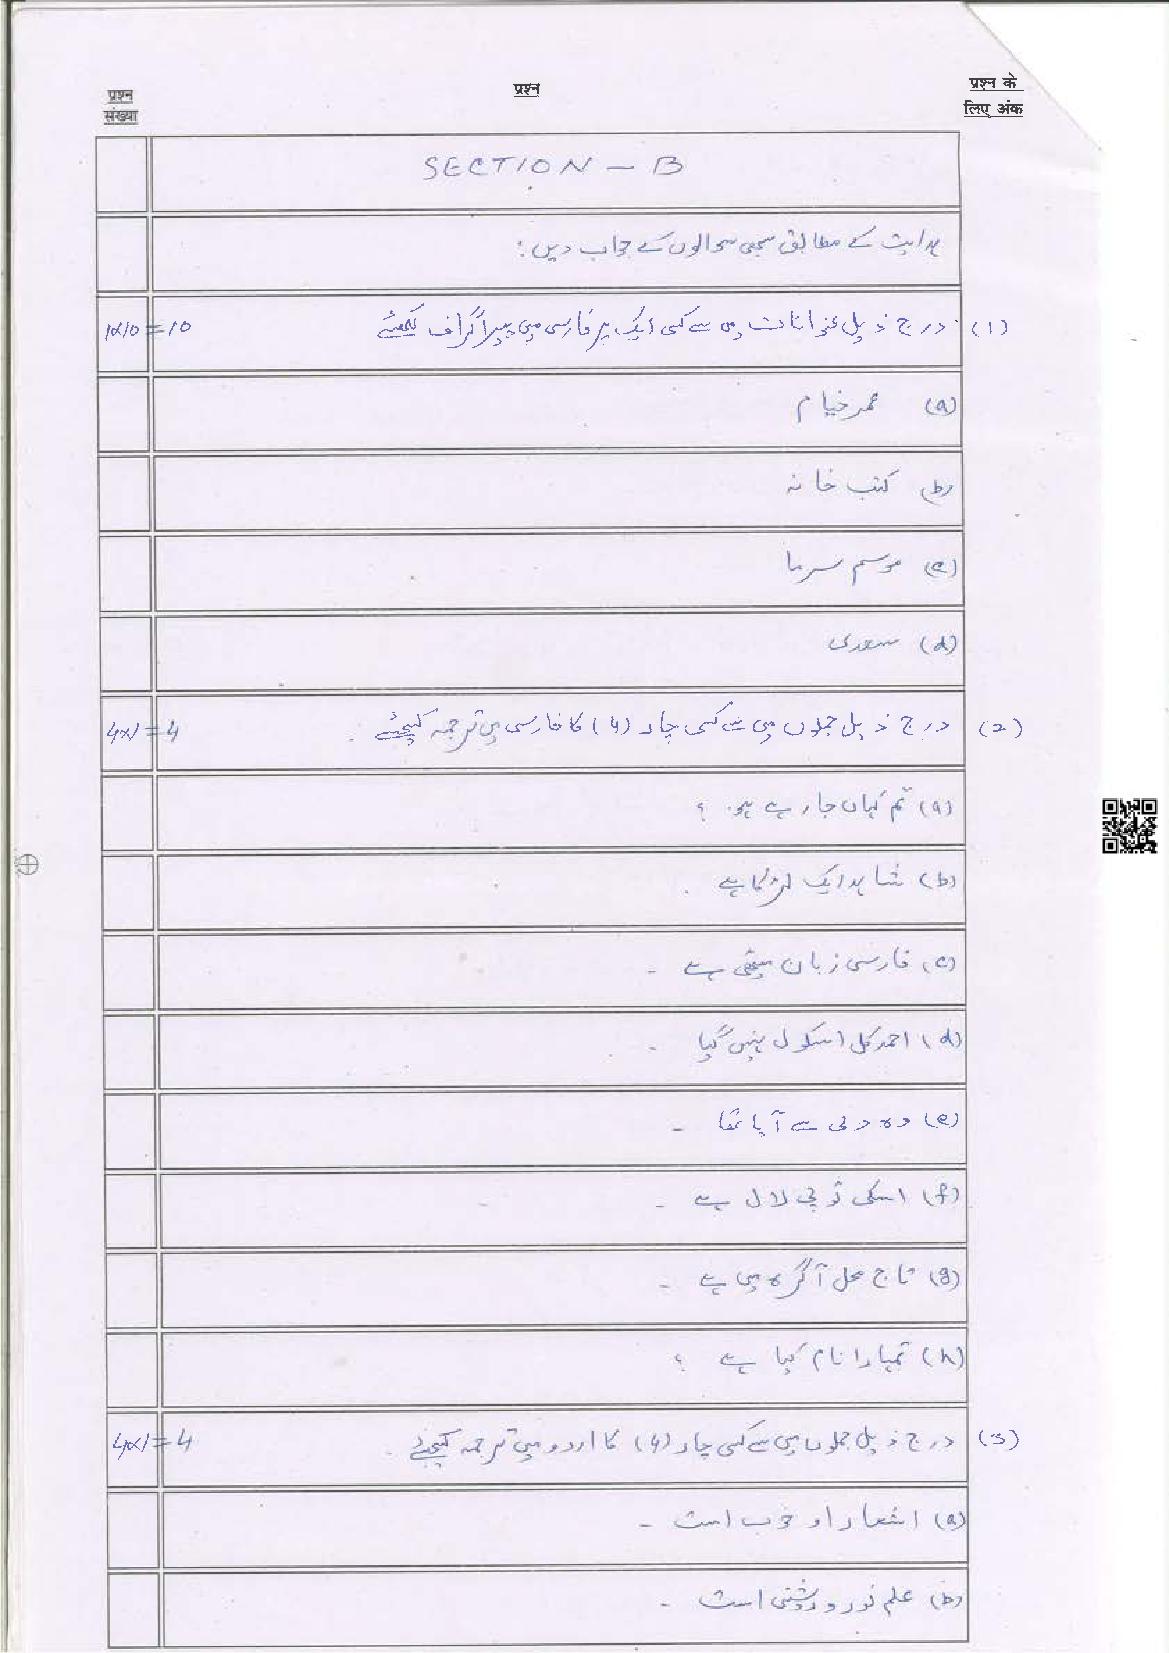 प्रश्न संख्या
प्रश्न
प्रश्न के लिए अंक
SECTION - B
ہدایت کے مطابق سبھی سوالوں کے جواب دیں:
(1) درج ذیل عنوانات میں سے کسی ایک پر فارسی میں پیراگراف لکھئے 1x10=10
(a) عمر خیام
(b) کتب خانہ
(c) موسم سرما
(d) سعدی
(2) درج ذیل جملوں میں سے کسی چار (4) کا فارسی میں ترجمہ کیجئے۔ 4x1=4
(a) تم کہاں جا رہے ہو۔ ؟
(b) شاہد ایک لڑکا ہے ۔
(c) فارسی زبان میٹھی ہے ۔
(d) احمد کل اسکول نہیں گیا ۔
(e) وہ دلی سے آیا تھا ۔
(f) اسکی ٹوپی لال ہے ۔
(g) تاج محل آگرہ میں ہے ۔
(h) تمہارا نام کیا ہے ؟
(3) درج ذیل جملوں میں سے کسی چار (4) کا اردو میں ترجمہ کیجئے۔ 4x1=4
(a) اشعار او خوب است ۔
(b) علم نور و روشنی است ۔